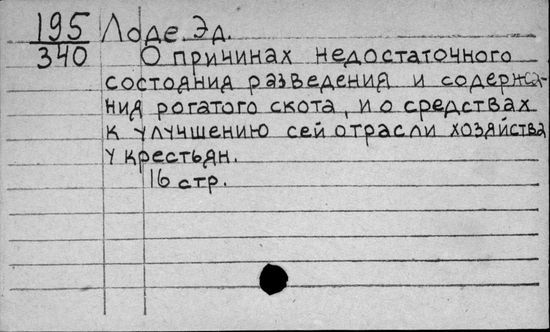 195 Лоде. Эд.
340 О причинах недостаточного
состояния разведения и содержа-
ния рогатого скота, и о средствах
к улучшению сей отрасли хозяйства
у крестьян.
16 стр.